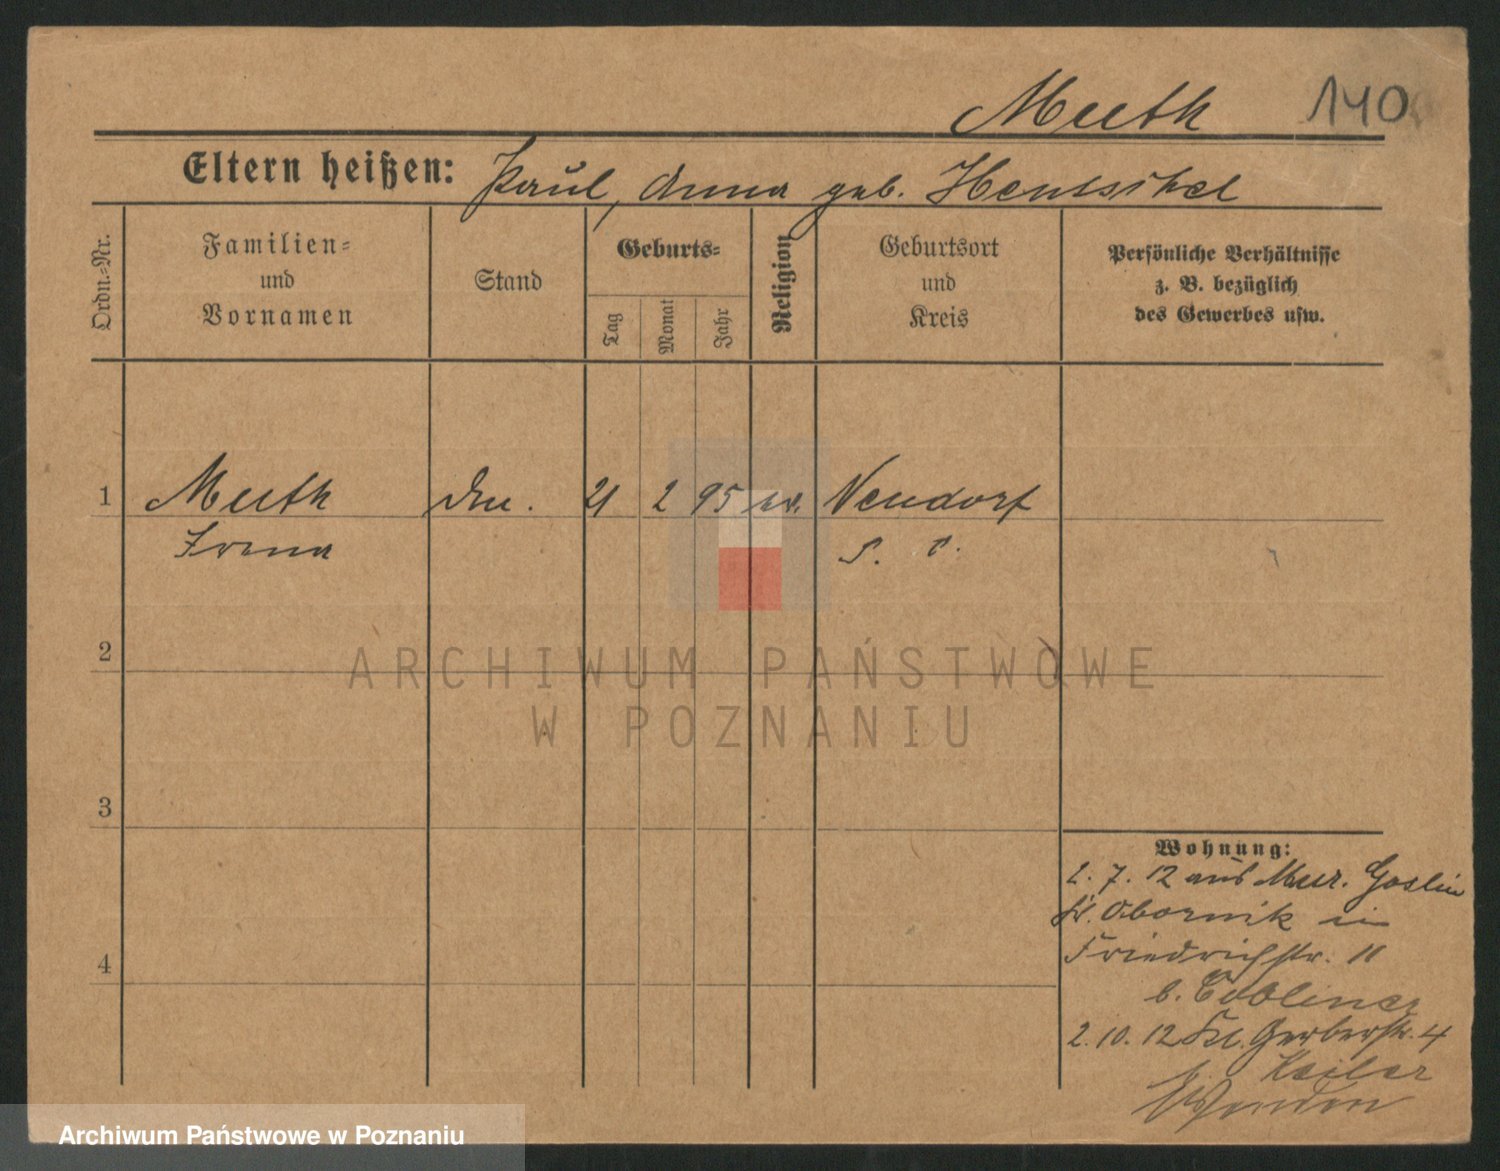 Mueth 140
Eltern heißen: Paul, Anna geb. Hentschel
Ordn.=Nr.
Familien=
und
Vornamen
Stand
Geburts=
Tag
Monat
Jahr
Religion
Geburtsort
und
Kreis
Persönliche Verhältnisse
z. B. bezüglich
des Gewerbes usw.
1 Mueth 21 2 95 ev. Neudorf
Irena
2
3
4
Wohnung:
2. 7. 12 aus Mur. Goslin
Kr. Obornik in
Friedrichstr. 11
b. Cobliner
2. 10. 12 Gerberstr. 4
ARCHIWUM PAŃSTWOWE
W POZNANIU
Archiwum Państwowe w Poznaniu